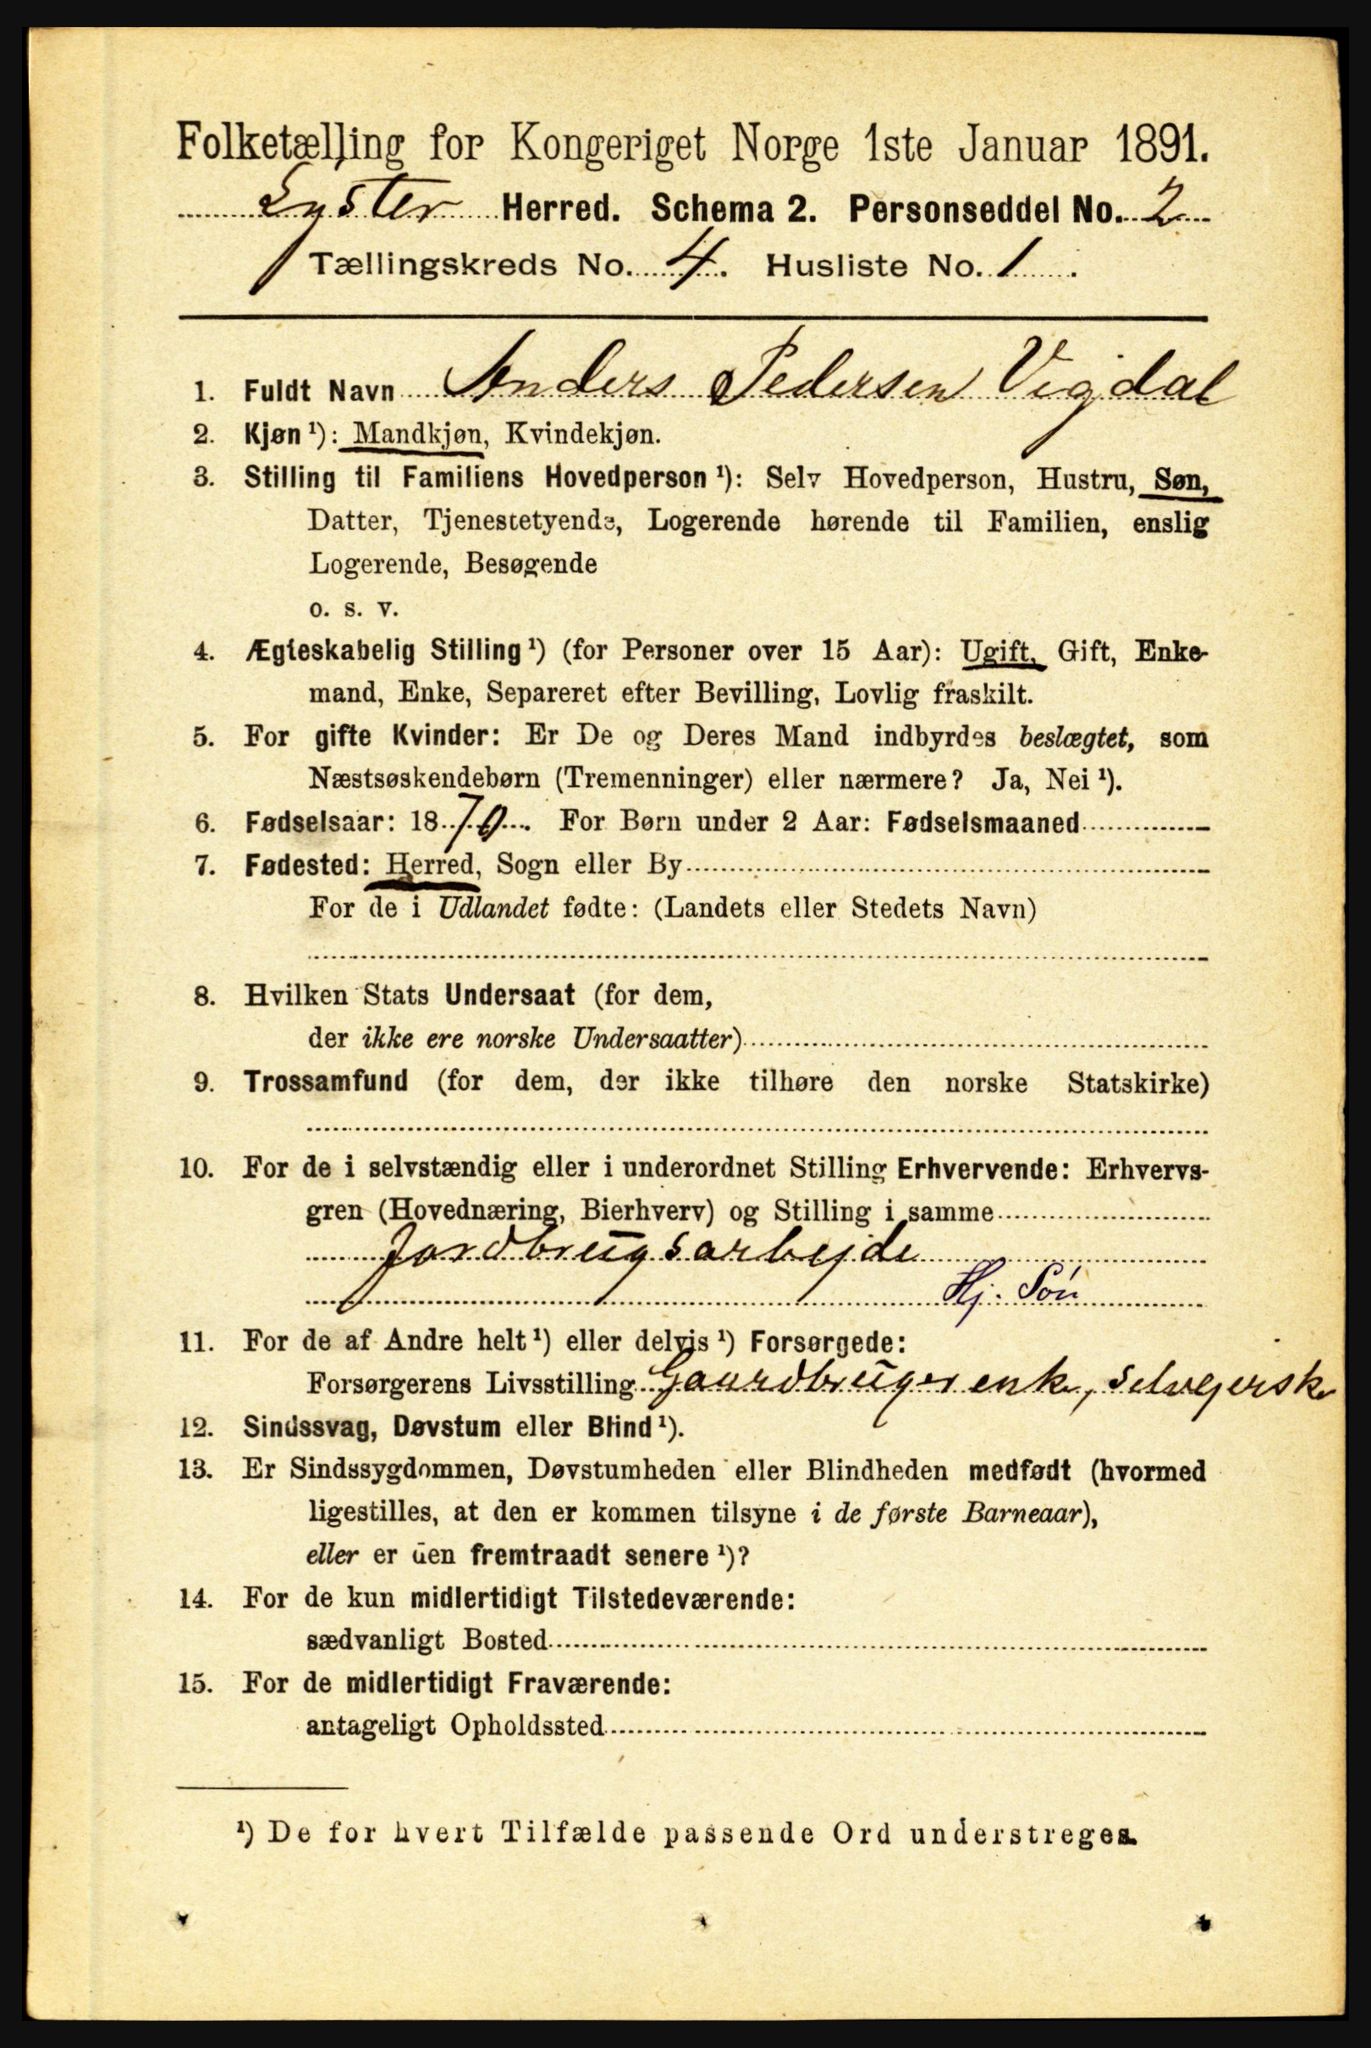 Folketælling for Kongeriget Norge 1ste Januar 1891.
Lyster Herred. Schema 2. Personseddel No. 2
Tællingskreds No. 4. Husliste No. 1.
1. Fuldt Navn Anders Pedersen Vigdal
2. Kjøn ¹): Mandkjøn, Kvindekjøn.
3. Stilling til Familiens Hovedperson ¹): Selv Hovedperson, Hustru, Søn,
Datter, Tjenestetyende, Logerende hørende til Familien, enslig
Logerende, Besøgende
o. s. v.
4. Ægteskabelig Stilling ¹) (for Personer over 15 Aar): Ugift, Gift, Enke-
mand, Enke, Separeret efter Bevilling, Lovlig fraskilt.
5. For gifte Kvinder: Er De og Deres Mand indbyrdes beslægtet, som
Næstsøskendebørn (Tremenninger) eller nærmere? Ja, Nei ¹).
6. Fødselsaar: 1870. For Børn under 2 Aar: Fødselsmaaned
7. Fødested: Herred, Sogn eller By
For de i Udlandet fødte: (Landets eller Stedets Navn)
8. Hvilken Stats Undersaat (for dem,
der ikke ere norske Undersaatter)
9. Trossamfund (for dem, der ikke tilhøre den norske Statskirke)
10. For de i selvstændig eller i underordnet Stilling Erhvervende: Erhvervs-
gren (Hovednæring, Bierhverv) og Stilling i samme
Jordbrugsarbejde
Hj. Søn
11. For de af Andre helt ¹) eller delvis ¹) Forsørgede:
Forsørgerens Livsstilling Gaardbrugerenke, selvejerske
12. Sindssvag, Døvstum eller Blind ¹).
13. Er Sindssygdommen, Døvstumheden eller Blindheden medfødt (hvormed
ligestilles, at den er kommen tilsyne i de første Barneaar),
eller er den fremtraadt senere ¹)?
14. For de kun midlertidigt Tilstedeværende:
sædvanligt Bosted
15. For de midlertidigt Fraværende:
antageligt Opholdssted
¹) De for hvert Tilfælde passende Ord understreges.